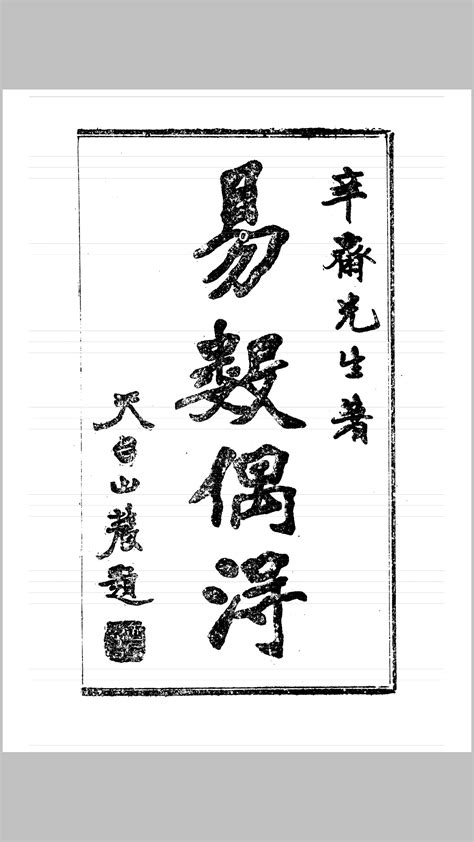 辛齋先生著
易數偶得
天台山農題